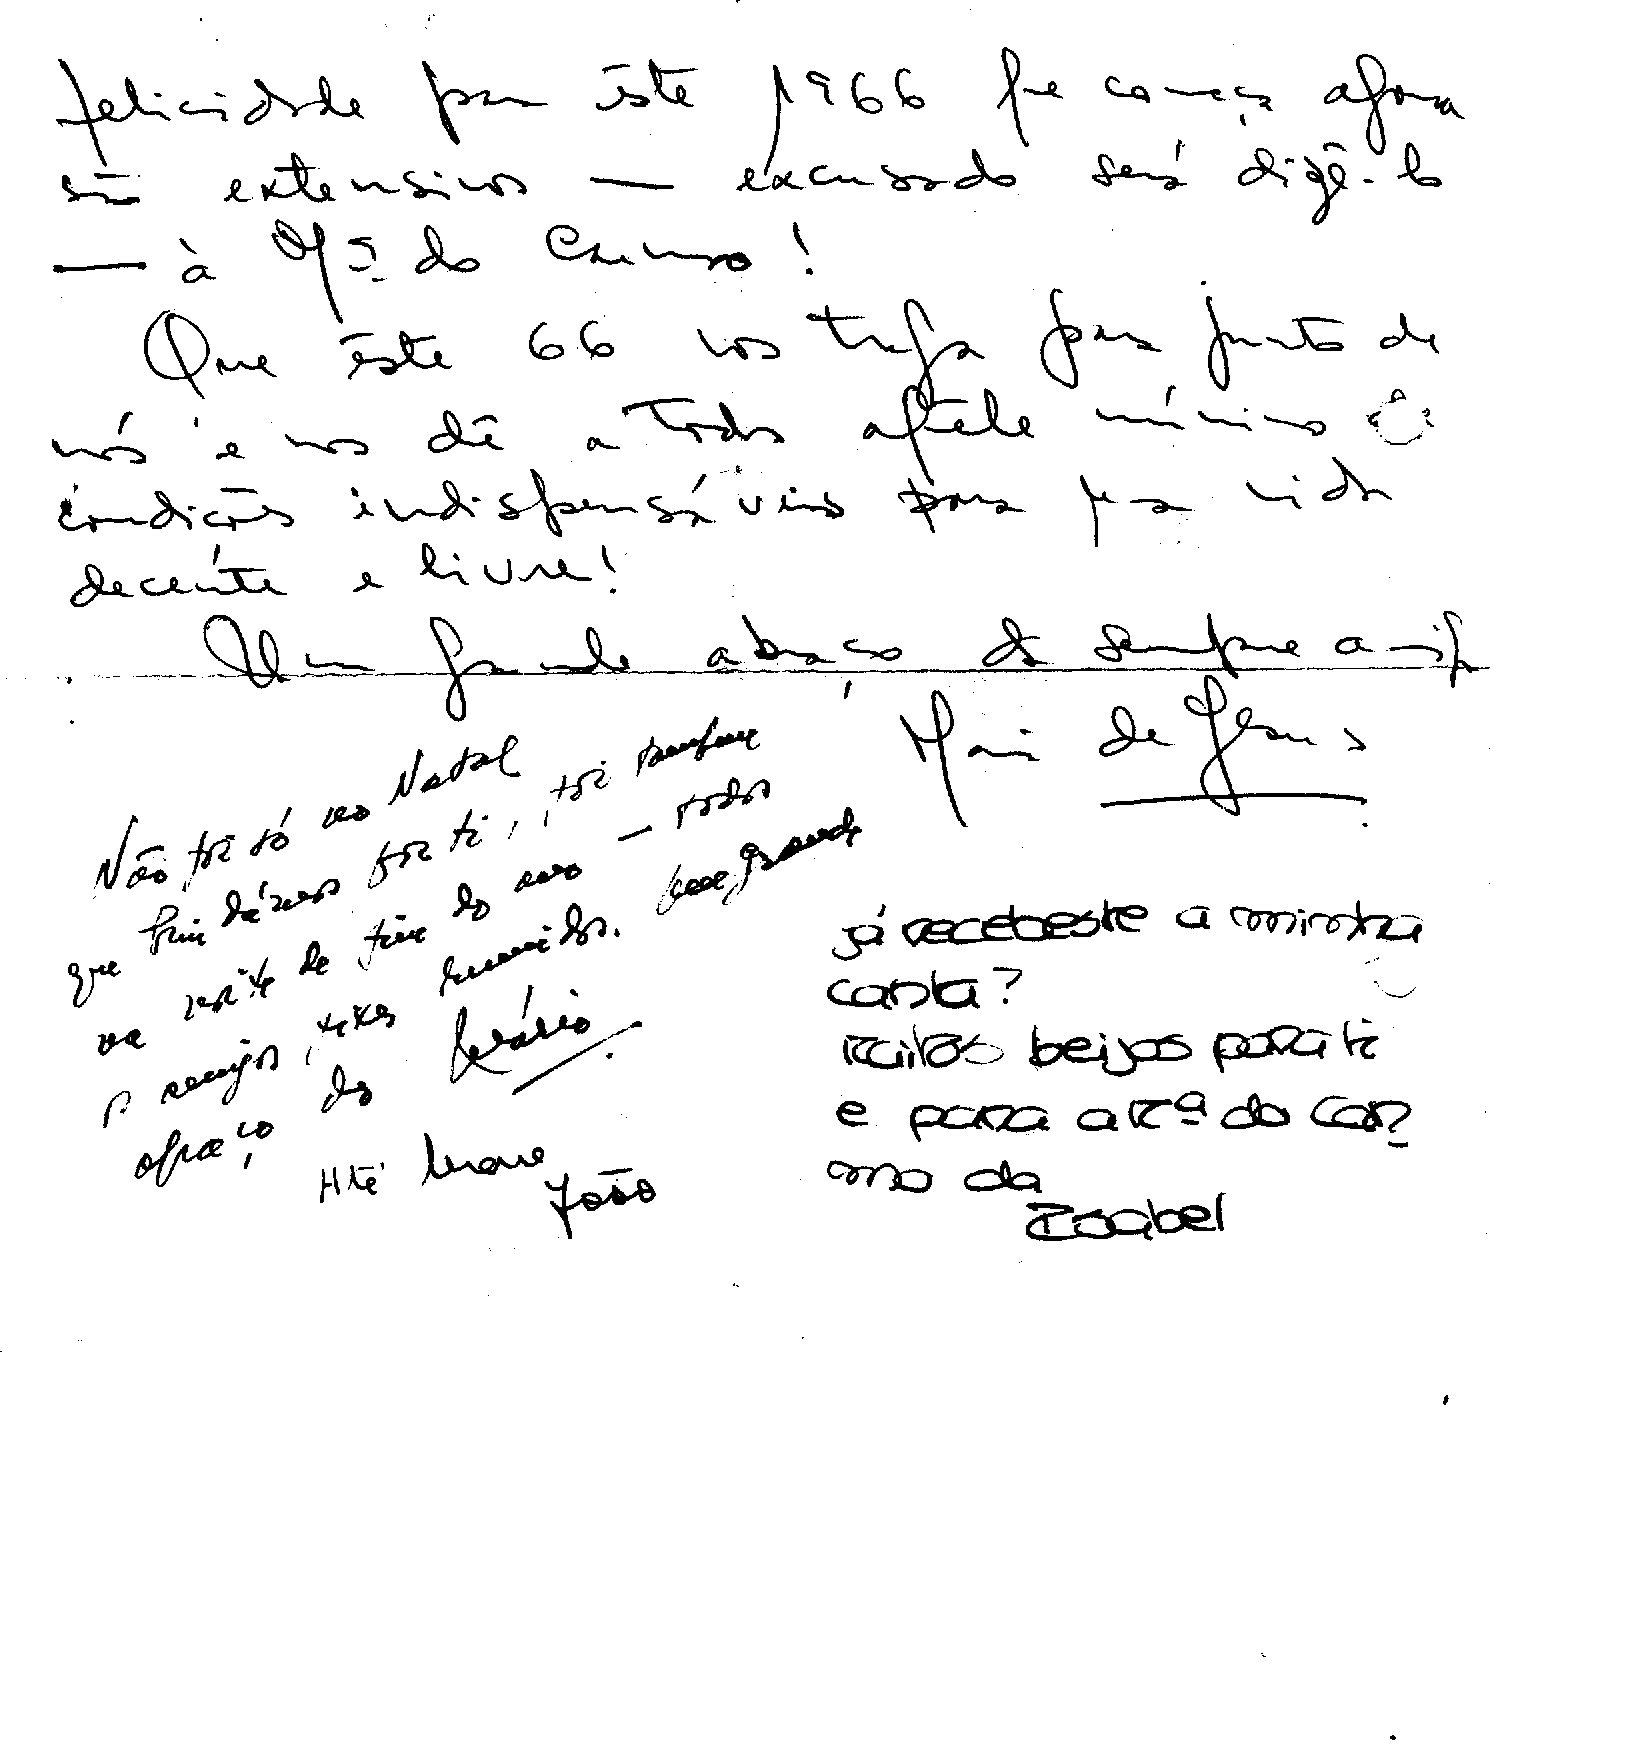 felicidade para êste 1966 que começa agora
são extensivos — excusado será dizê-lo
— à Mª do Carmo!
Que êste 66 vos traga para junto de
nós e nos dê a todos aquele mínimo de
condições indispensáveis para uma vida
decente e livre!
Um grande abraço do sempre amigo
Mário de Jesus
Não foi só no Natal
que brindámos por ti, foi sempre
na noite de fim do ano — todos
os amigos, reunidos. Um grande
abraço do
Até breve
João
já recebeste a minha
carta?
Muitos beijos para ti
e para a Mª do Car
mo da
Isabel